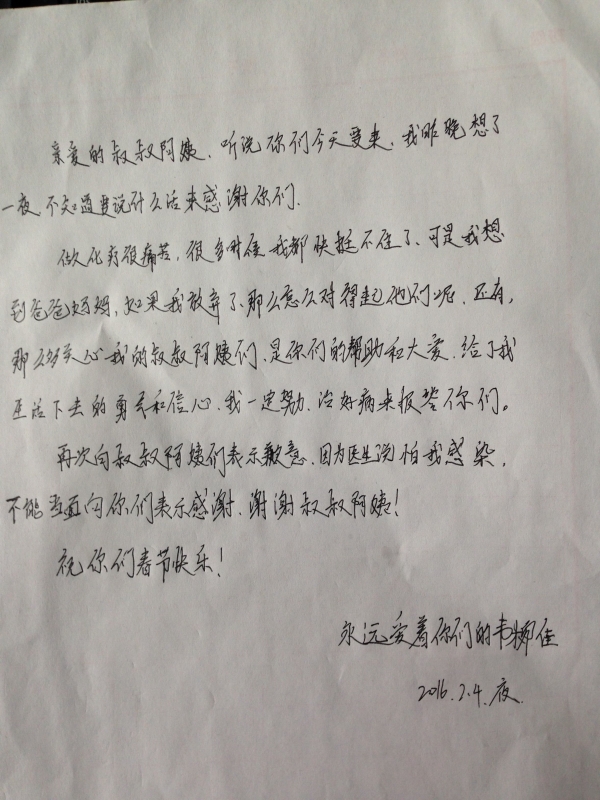 亲爱的叔叔阿姨，听说你们今天要来，我昨晚想了
一夜，不知道要说什么话来感谢你们。
做化疗很痛苦，很多时候我都快挺不住了，可是我想
到爸爸妈妈，如果我放弃了，那么怎么对得起他们呢，还有，
那么多关心我的叔叔阿姨们，是你们的帮助和大爱，给了我
生活下去的勇气和信心，我一定努力，治好病来报答你们。
再次向叔叔阿姨们表示歉意，因为医生说怕我感染，
不能当面向你们表示感谢，谢谢叔叔阿姨！
祝你们春节快乐！
永远爱着你们的韦娜佳
2016.2.4.夜.